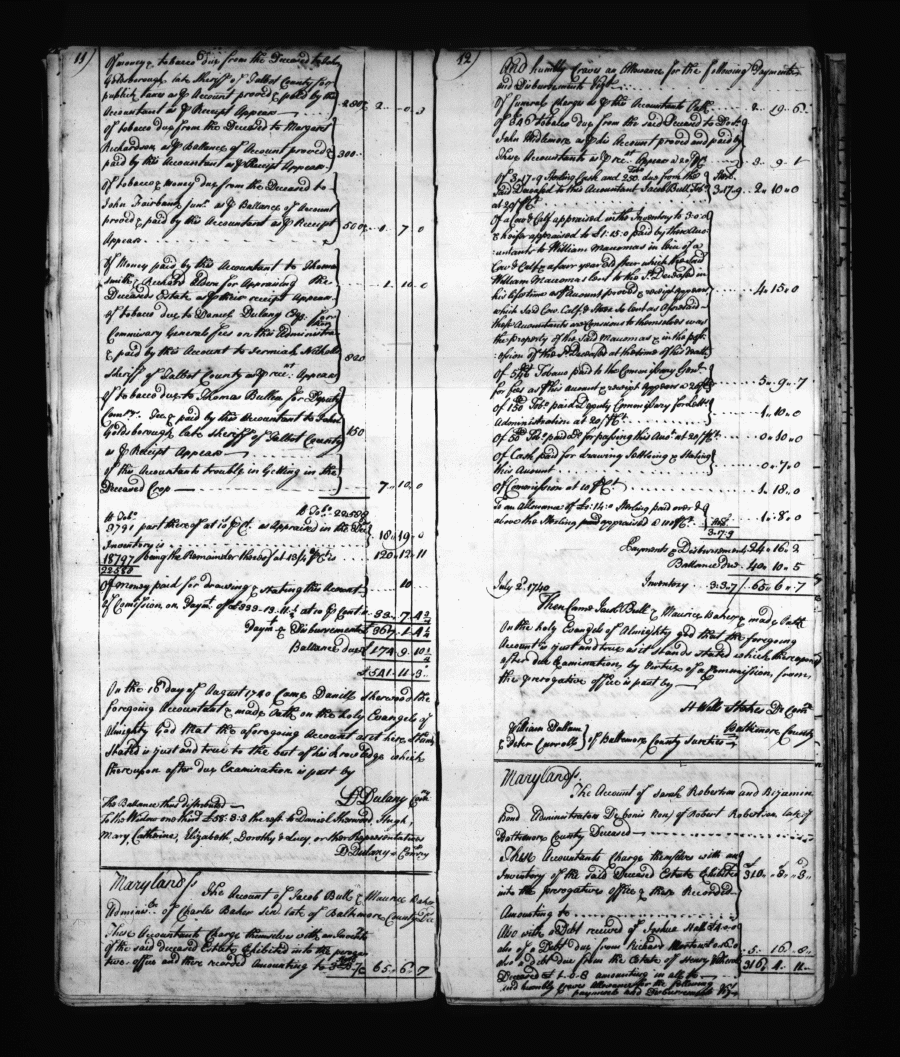 11)
Of money & tobacco due from the Deceased to John
Goldsborough late Sheriff of Talbot County for
publick taxes as ⅌ Account proved & paid by this
Accountant as ⅌ Receipt Appears 280 2 0 3
of tobacco due from the Deceased to Margaret
Richardson as ⅌ Ballance of Account proved &
paid by this Accountant as ⅌ Receipt Appears 300
Of tobacco & money due from the Deceased to
John Fairbank junr. as ⅌ Ballance of Account
proved & paid by this Accountant as ⅌ Receipt
Appears 1 7 0
Of Money paid by this Accountant to Thomas
Smith & Richard for Appraising the
Deceased Estate as ⅌ their receipt Appears 1 10 0
of tobacco due to Daniel Dulany Esqr. for
his
Commissary Generals fees on this Administra
& paid by this Account to Jeremiah Nichols
Sheriff of Talbot County as ⅌ rect. Appears 820
of tobacco due to Thomas Bullen for Deputy
Comry. fees & paid by this Accountant to John
Goldsborough late Sheriff of Talbot County
as ⅌ Receipt Appears
of this Accountants trouble in Getting in the
Deceased Crop 7 10 0
℔ Tobo. 22588
℔ Tobo.
3791 part thereof at 10 ⅌ Ct. as Appraised in the
Inventory is 18 19 0
18797 being the Remainder thereof at ⅌ Ct. is 120 12 11
22588
Of money paid for drawing & stating this Account 10
of Comission on Paymt. of at 10 ⅌ Cent is
Paymt. & Disbursements
Ballance due 174 9
On the 16 day of August 1740 Came Daniell Sherwood the
foregoing Accountant & made Oath on the holy Evangels of
Almighty God that the aforegoing Account as it here Stands
Stated is just and true to the best of his knowledge which
thereupon after due Examination is past by
D Dulany Comry
The Ballance thus distributed
To the Widow one third £58:3:3 the rest to Daniel Sherwood, Hugh,
Mary, Catharine, Elizabeth, Dorothy & Lucy or their Representatives
D Dulany Comry
Maryland ss
The Account of Jacob Bull & Maurice Baker
Adminisrs. of Charles Baker Senr. late of Baltimore County Dec
These Accountants Charge themselves with an Inventory
of the said deceased Estate Exhibited into the preroga
tive office and there recorded Amounting to 65 6 7
12)
And humbly Craves an Allowance for the following Payments
and Disbursements Vizt.
Of funeral Charges as ⅌ this Accountants Oath 2 19 6
of 846 tobacco due from the said Deceased to Doctr.
John as ⅌ his Account proved and paid by
these Accountants as ⅌ rect. Appears a 20 ⅌ Ct. 8 9 1
of 3.17.9 Sterling Cash and 250 due from the Sterl.
said Deceased to this Accountant Jacob Bull Tobo. 3.17.9 2 10 0
at 20/⅌ Ct.
Of a Cow & Calf appraised in the Inventory to 3:0:0
& heifer appraised to £1:15:0 paid by these Acco
untants to William Maucomas in lieu of a
Cow & Calf & a four year old steer which the said
William Maucomas lent to the sd. Deceased in
his life time as ⅌ Account proved & receipt appears
which said Cow Calf & Steer so lent as Aforesaid 4 15 0
these Accountants are Conscious to themselves was
the property of the said Maucomas & in the poss
ession of the sd. Deceased at the time of his death
of Tobacco paid to the Commissary Genl.
for fees as ⅌ his Account & receipt Appears a 20/⅌ Ct. 5 9 7
of 150 Tobo. paid Deputy Commissary for Letters
Administration at 20/⅌ Ct. 1 10 0
Of 50 Tobo. paid Do. for passing this Accot. at 20/⅌ Ct. 0 10 0
Of Cash paid for drawing Settling & Stating
this Account 0 7 0
Of Commission at 10 ⅌ Ct. 1 18 0
To an Allowance of £1:14:0 Sterling paid over &
above the Sterling paid appraised a ⅌ Ct. 1 8 0
Payments & Disbursements 24 16 2
Ballance due 40 10 5
Inventory 65 6 7
July 2d. 1740
Then Came Jacob Bull & Maurice Baker & made Oath
On the holy Evangels of Almighty god that the foregoing
Account is just and true as it stands stated which thereupon
after due Examination, by Vertue of a Commission, from,
the prerogative office is past by
Wm Stokes De Comry
Baltimore County
William Dallam
& Peter Carroll } of Baltimore County Sureties
Maryland ss.
The Account of Sarah Robertson and Benjamin
Bond Administrators De bonis Non of Robert Robertson late of
Baltimore County Deceased
These Accountants Charge themselves with an
Inventory of the said Deceased Estate Exhibited
into the prerogative office & there Recorded 310 8 3
Amounting to
Also with a Debt received of Joshua Hall
also of a Debt due from Richard
also a debt due from the Estate of Henry 5 16 8
Deceased at 1.0.8 amounting in all to 316 4 11
and humbly Craves Allowance for the following
payments and Disbursements Vizt.